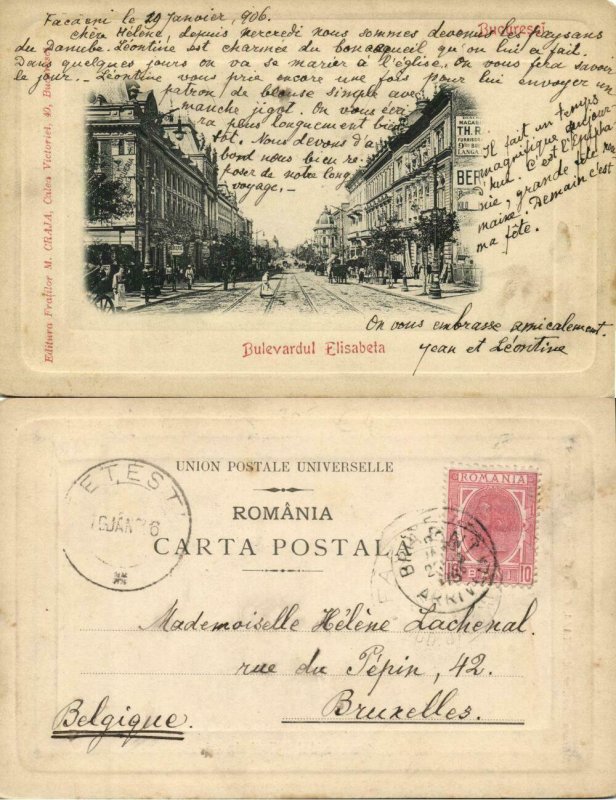 Făcăeni le 29 Janvier, 906.
Bucuresci
Chère Hélène, depuis mercredi nous sommes devenus les paysans
du Danube. Léontine est charmée du bon accueil qu'on lui a fait.
Dans quelques jours on va se marier à l'église. On vous fera savoir
le jour. – Léontine vous prie encore une fois pour lui envoyer un
patron de blouse simple avec
manche jigot. On vous écri
ra plus longuement bien
tôt. Nous devons d'a
bord nous bien re
poser de notre long
voyage. –
Il fait un temps
magnifique aujour
'hui. C'est l'Epipha
nie, grande fête rou
maine. Demain c'est
ma fête.
On vous embrasse amicalement.
Jean et Léontine
Bulevardul Elisabeta
Editura Fraţilor M. CRAJA, Calea Victoriei, 49,
MAGAS
TH. R
BER
UNION POSTALE UNIVERSELLE
ROMÂNIA
CARTA POSTAL
ETEST
JAN
ROMANIA
10
10
ARRIV
Mademoiselle Hélène Lachenal.
rue du Pépin, 42.
Bruxelles.
Belgique.